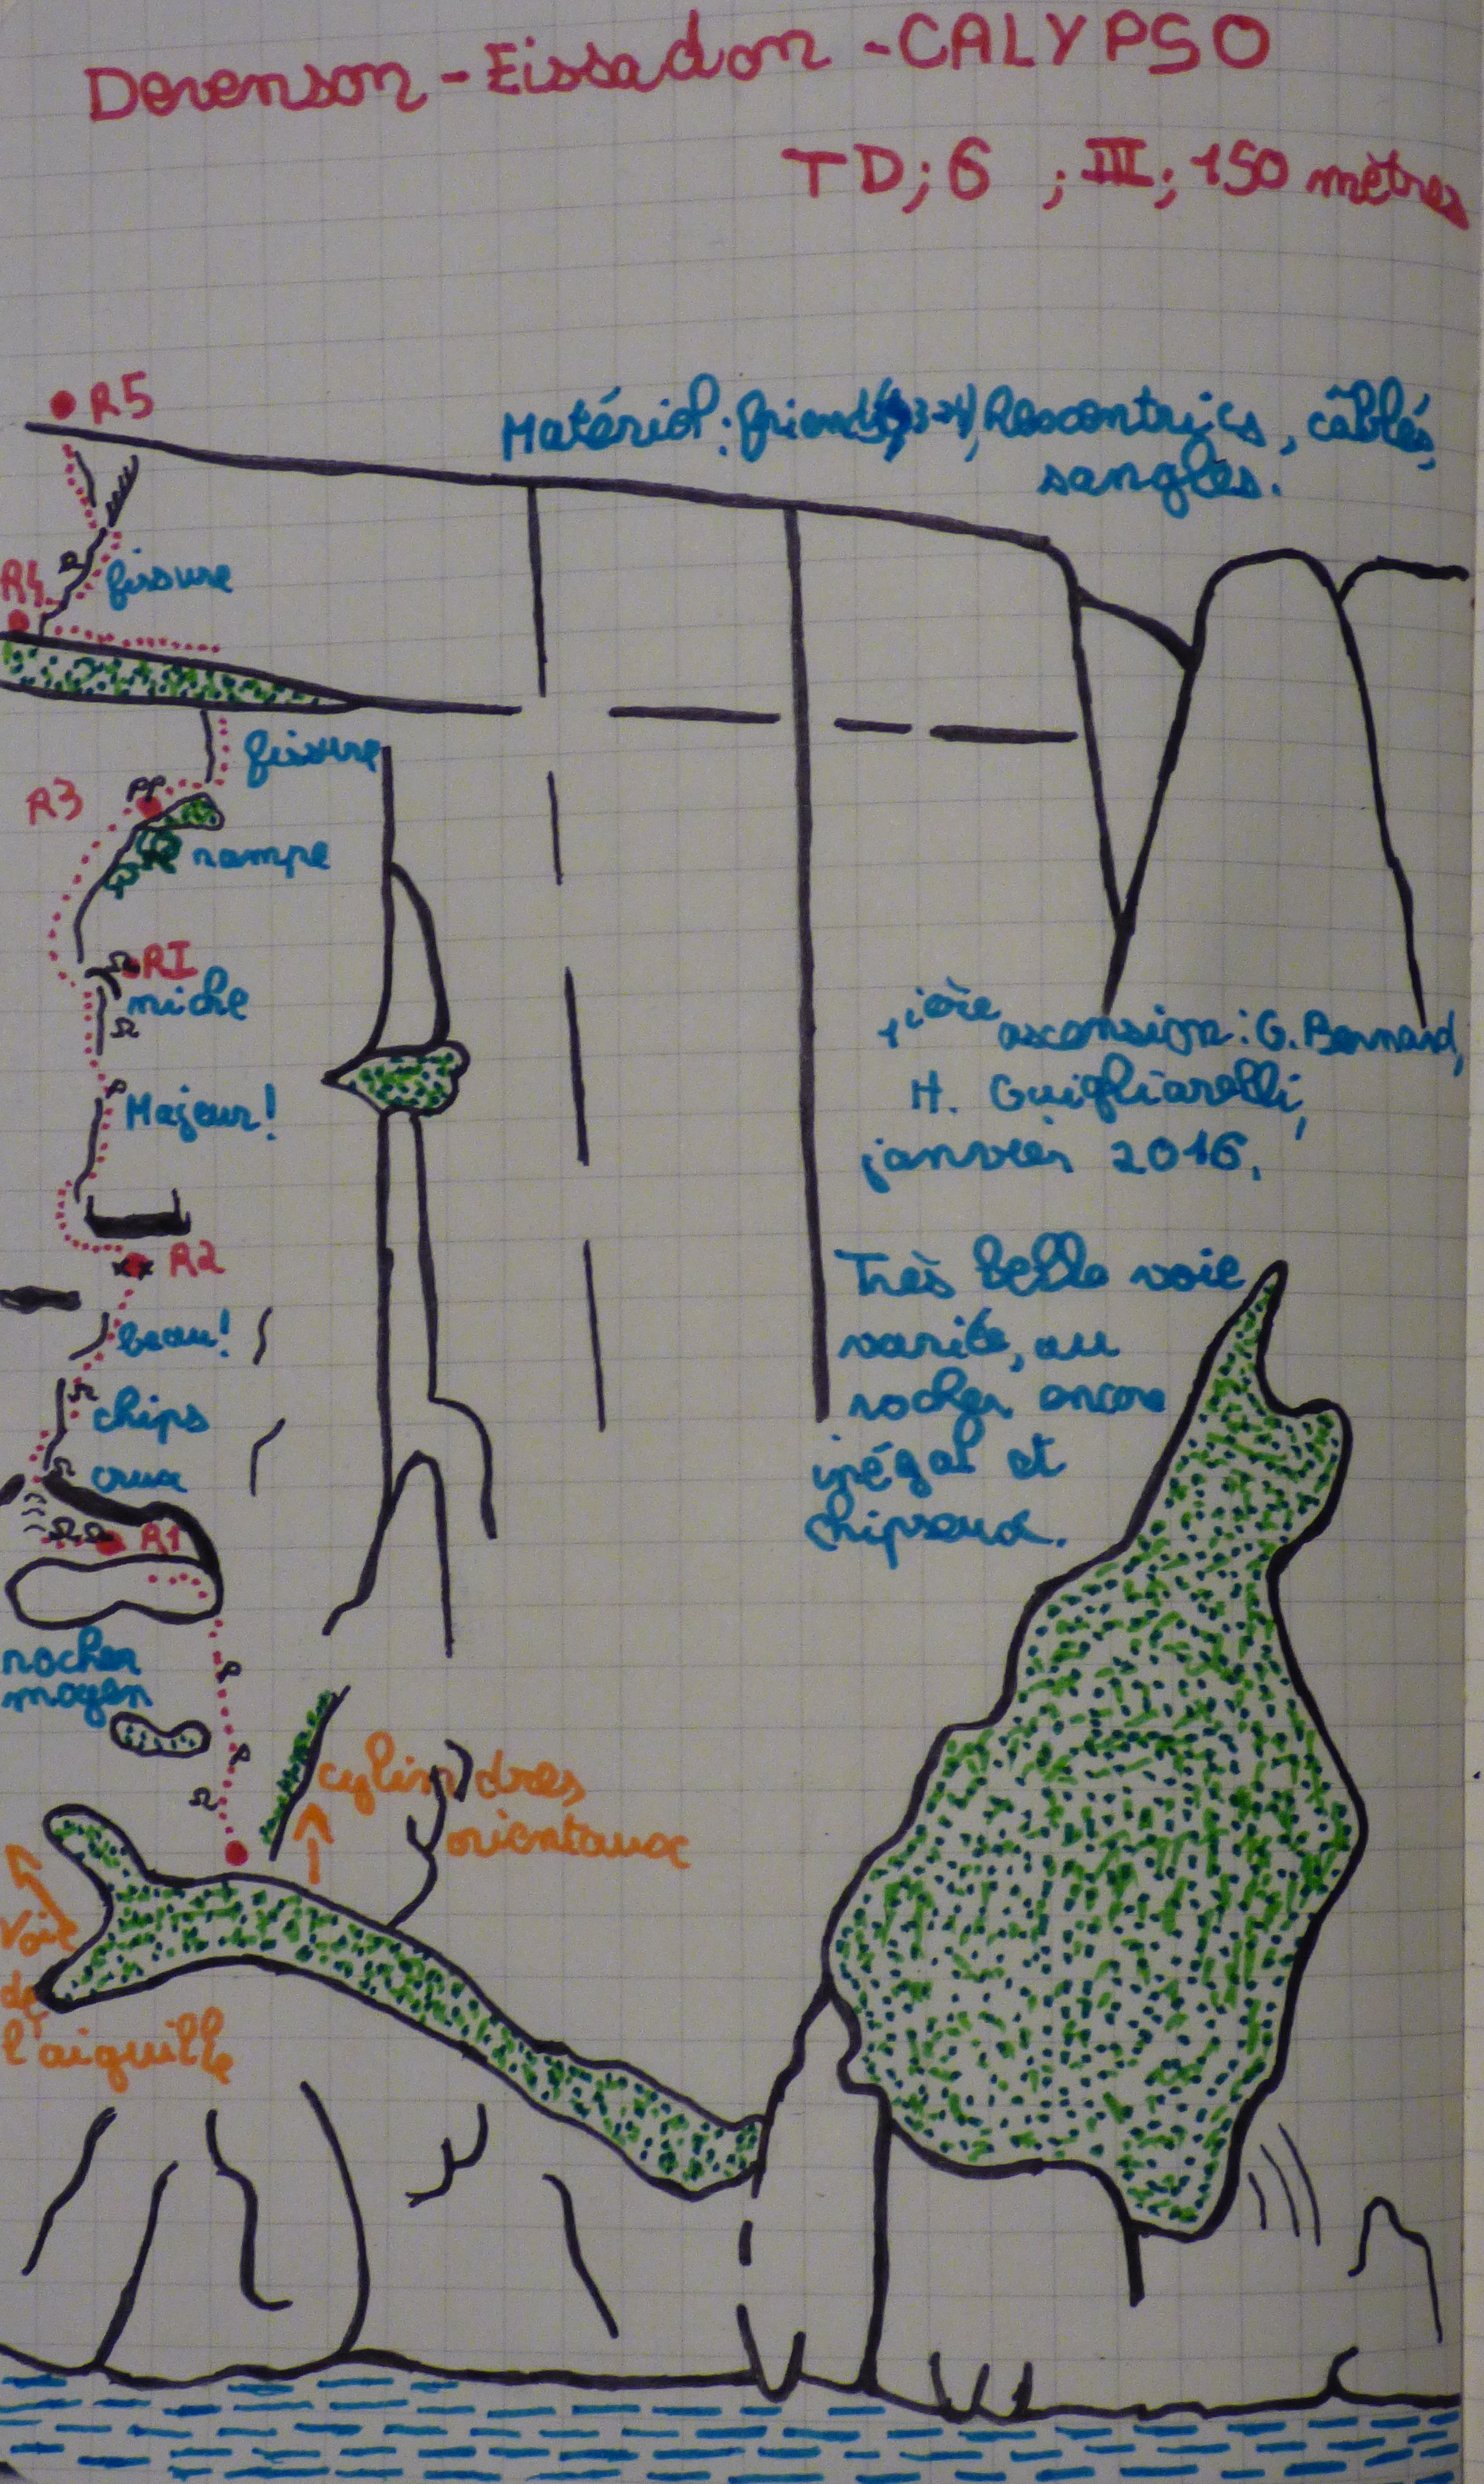 Devenson - Eissadon - CALYPSO
TD; 6 ; III; 150 mètres
R5
Matériel: friends( 3-4), Excentrics, câblés,
sangles.
R4
fissure
fissure
R3
rampe
RI
niche
1ière ascension: G. Bernard,
H. Guigliarelli,
janvier 2016.
Majeur!
R2
Très belle voie
variée, au
rocher encore
inégal et
chipseux.
beau!
chips
crux
R1
rocher
moyen
cylindres
orientaux
Voie
de
l'aiguille